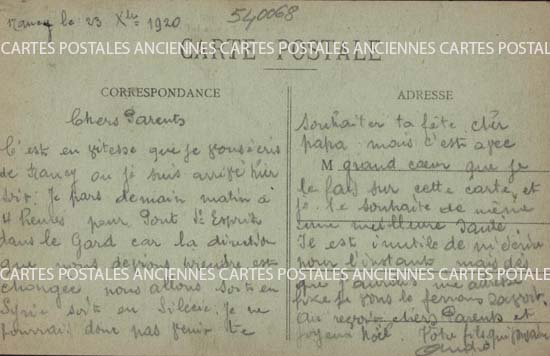 Nancy le 23 Xbre 1920
540068
CARTES POSTALES ANCIENNES CARTES POSTALES ANCIENNES CARTES POSTALES ANCIENNES
CARTE POSTALE
CORRESPONDANCE
Chers Parents
C'est en vitesse que je vous écris
de Nancy ou je suis arrivé hier
soir. Je pars demain matin à
4 heures pour Pont St Esprit
dans le Gard car la direction
que nous devions prendre est
changée nous allons soit en
Syrie soit en Silicie. Je ne
pourrais donc pas venir te
ADRESSE
souhaiter ta fête, cher
papa mais c'est avec
M grand cœur que je
le fais sur cette carte, et
je te souhaite de même
une meilleure santé
Il est inutile de m'écrire
pour l'instant mais dès
que j'aurais une adresse
fixe je vous le ferrons savoir
au revoir chers Parents et
joyeux Noël. Votre fils qui
André
CARTES POSTALES ANCIENNES CARTES POSTALES ANCIENNES CARTES POSTALES ANCIENNES